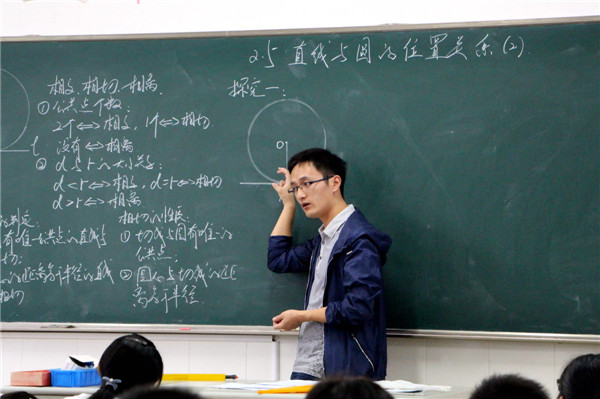 2.5 直线与圆的位置关系(2)
相交、相切、相离
①公共点个数:
2个⇔相交, 1个⇔相切
没有⇔相离
②d与r的大小关系:
d<r⇔相交, d=r⇔相切
d>r⇔相离
l
的判定:
有唯一公共点的直线与
切.
的距离等于半径的直线
相切
相切的性质:
①切线与圆有唯一的
公共点;
②圆心与切线的距
离等于半径.
探究一:
O